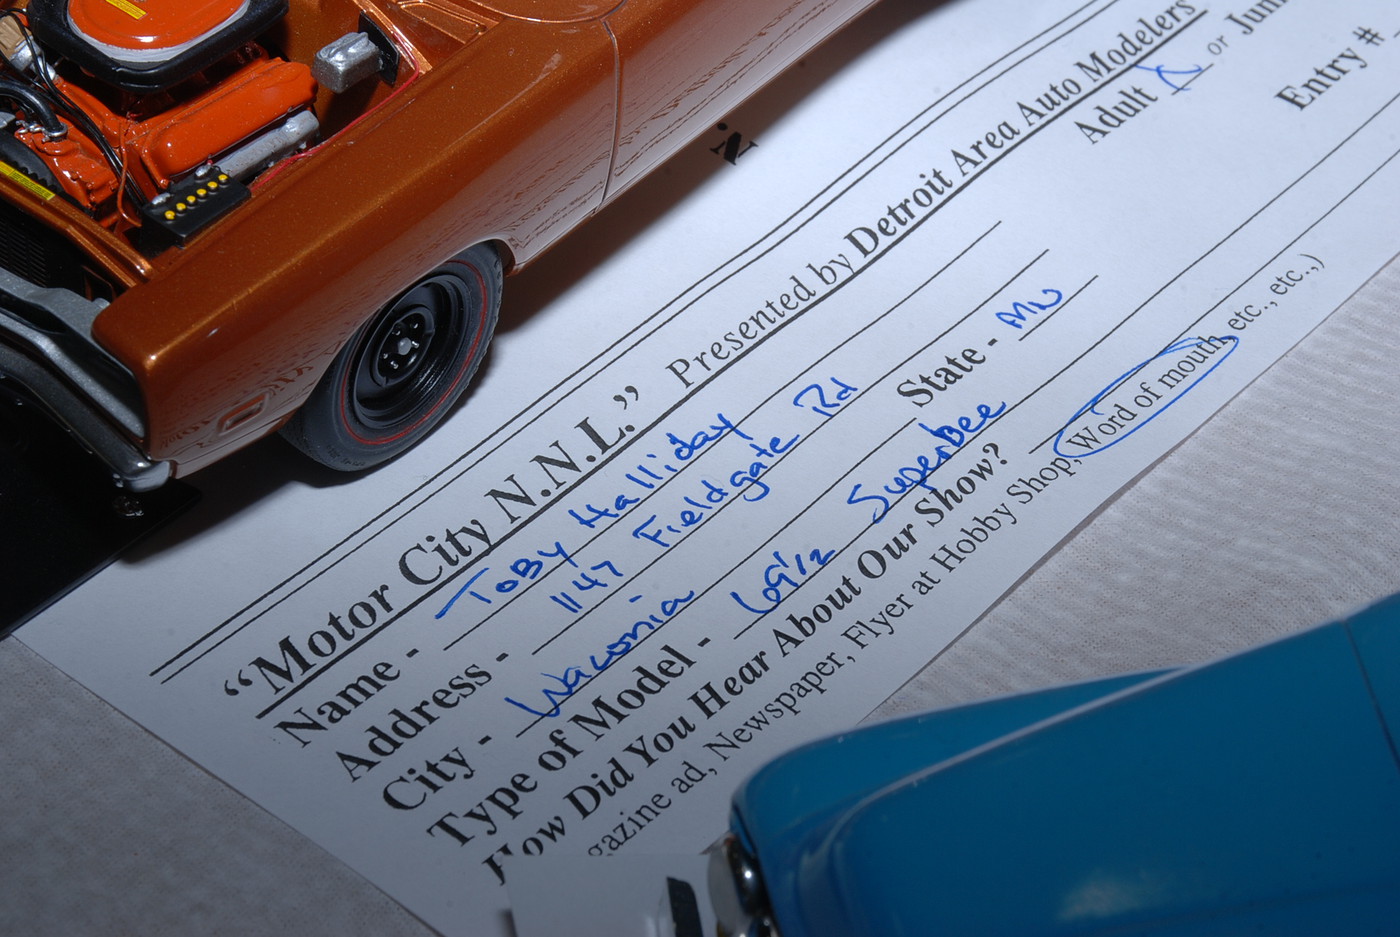 “Motor City N.N.L.” Presented by Detroit Area Auto Modelers
Name - Toby Halliday Adult X or
Address - 1147 Fieldgate Rd Entry #
City - Waconia State -
Type of Model - 69 1/2 SuperBee
How Did You Hear About Our Show?
gazine ad, Newspaper, Flyer at Hobby Shop, Word of mouth, etc., etc.,)